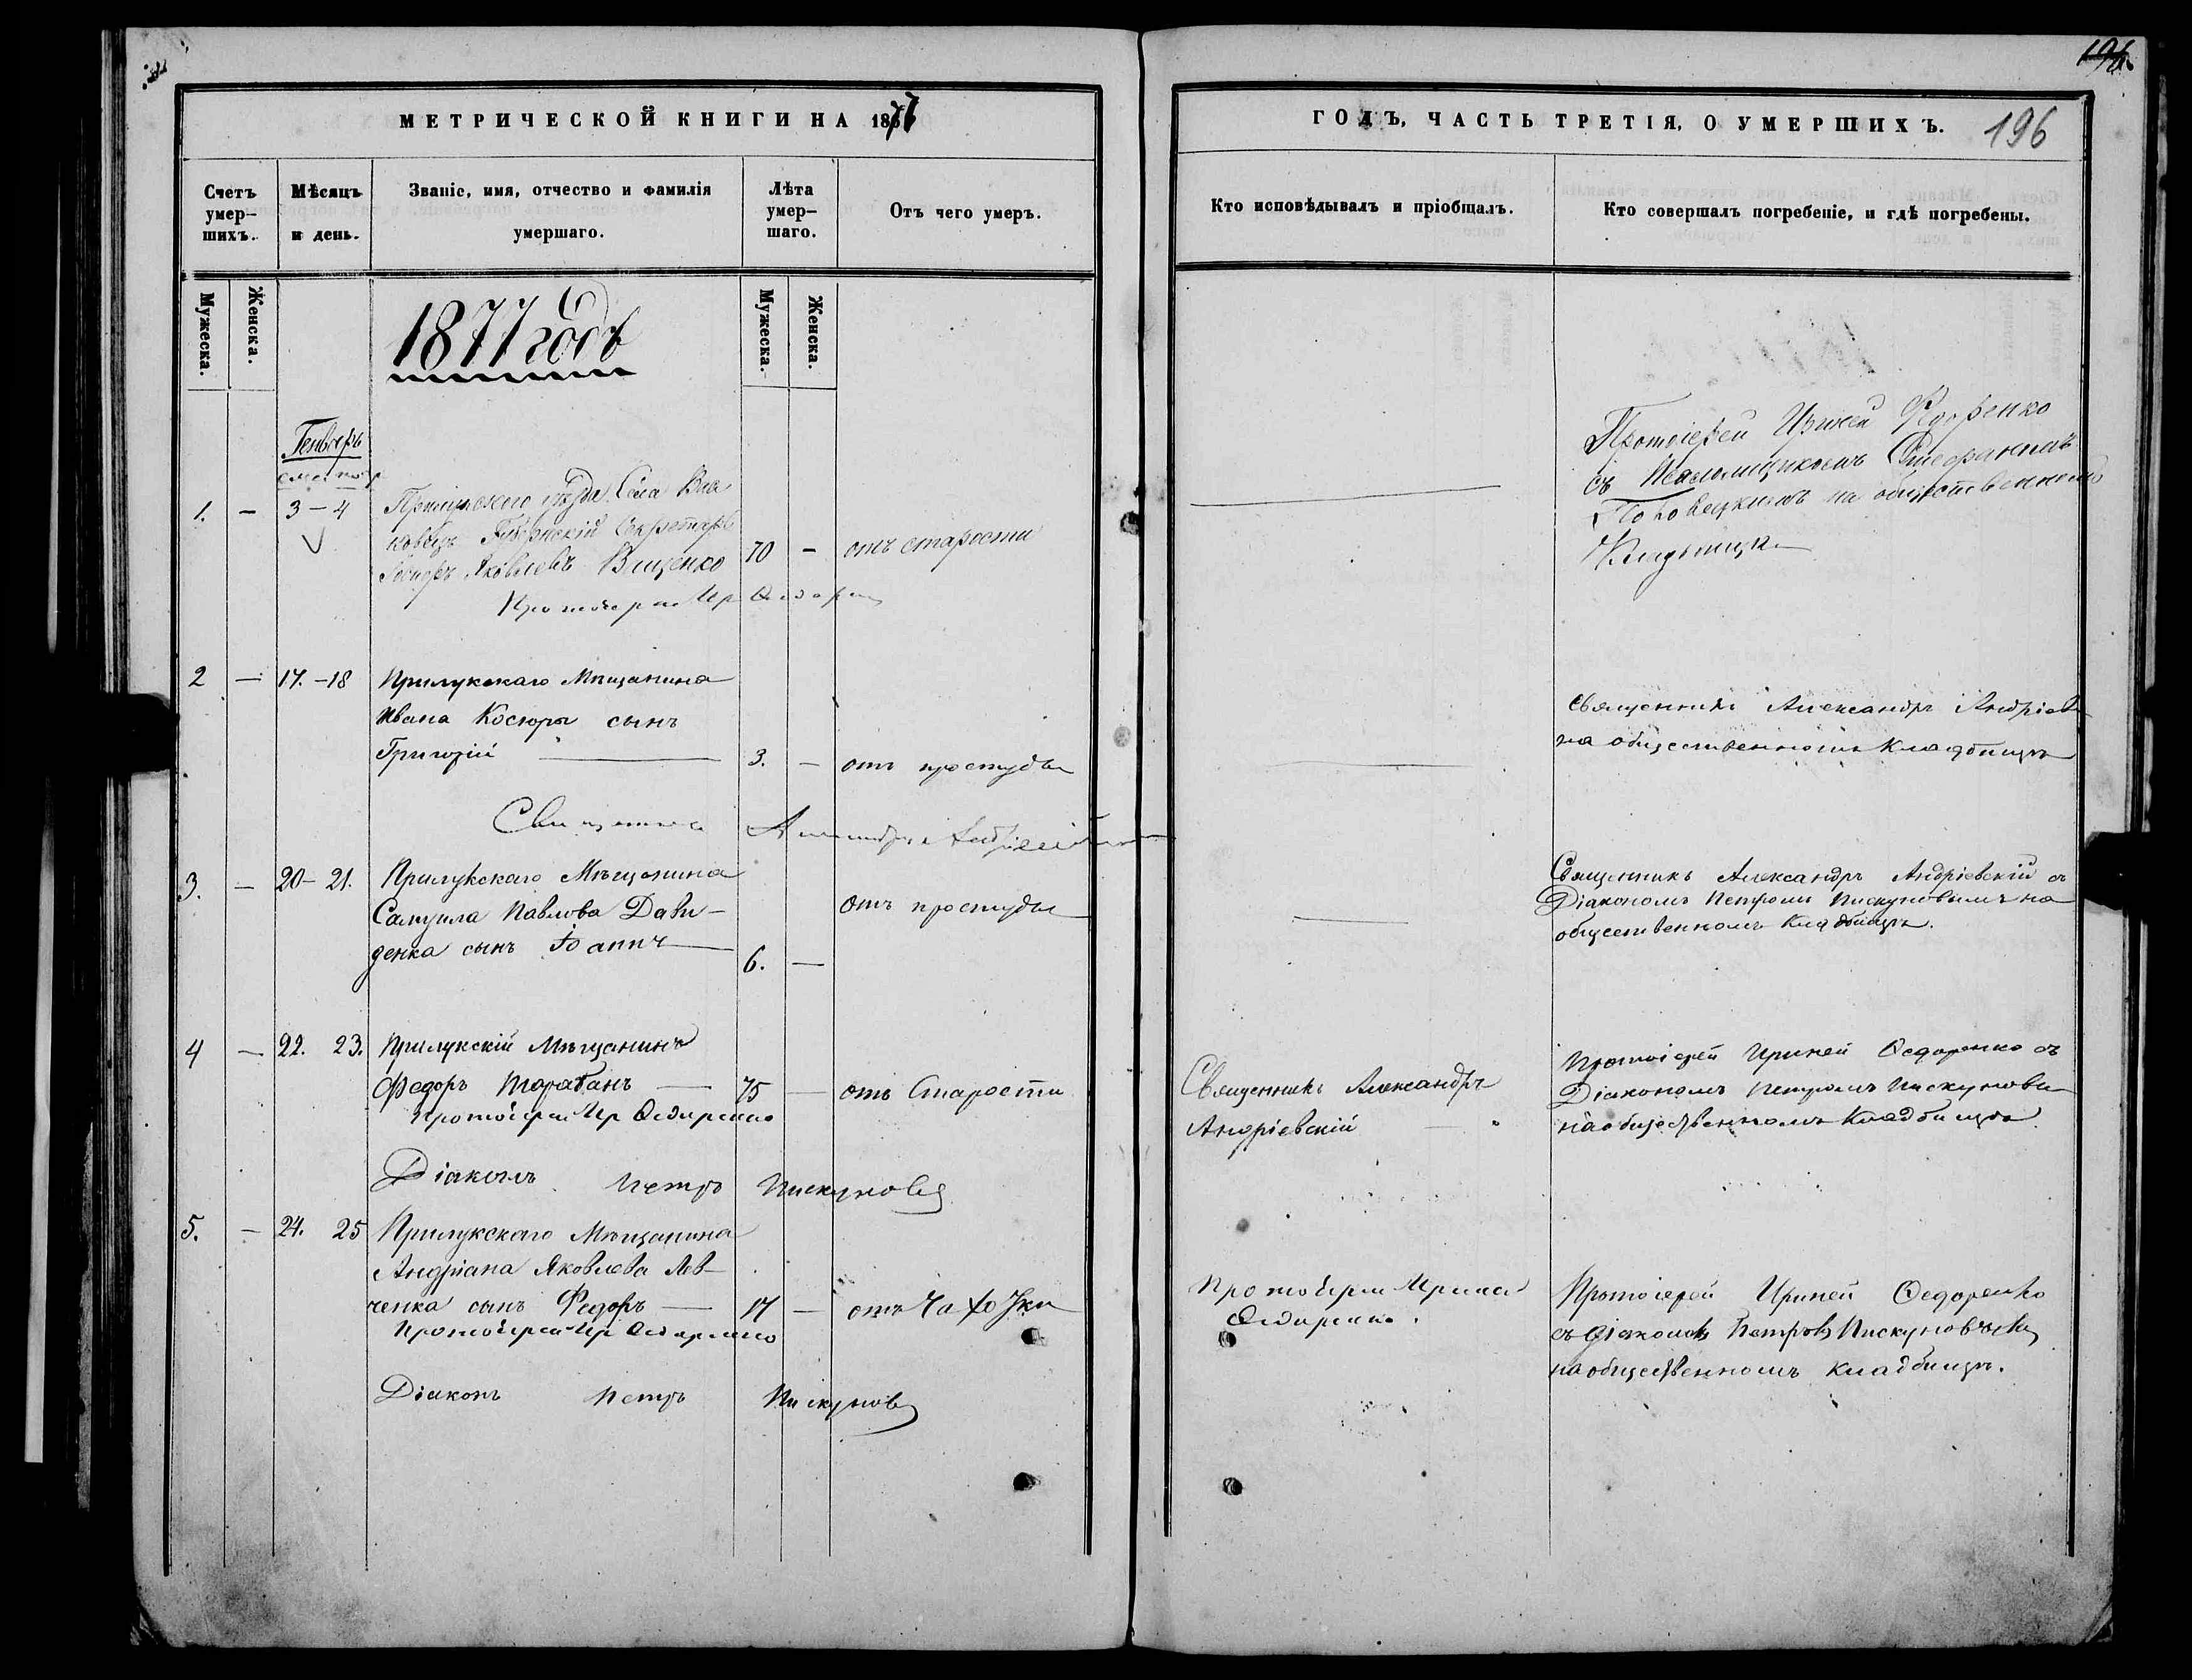 МЕТРИЧЕСКОЙ КНИГИ НА 1877
Счетъ умер-шихъ.
Мѣсяцъ и день.
Званіе, имя, отчество и фамилія умершаго.
Лѣта умер-шаго.
Отъ чего умеръ.
Мужеска.
Женска.
Мужеска.
Женска.
1877 годъ
Генварь
1. - 3 - 4
Прилуцкого уѣзда Села
Губернскій Секретарь
Яковлевъ Вященко 70 - отъ старости
2 — 17. - 18 Прилукскаго Мѣщанина
Ивана Косюры сынъ
Григорій 3. — отъ простуды
3. — 20 - 21. Прилукскаго Мѣщанина
Самуила Павлова Дави- отъ простуды
денка сынъ Іоаннъ 6. —
4 — 22. 23. Прилукскій Мѣщанинъ
Федоръ Тарабанъ — 75 — отъ Старости
Протоіерей Ир Ѳедоренко
Діаконъ Петръ Пискуновъ
5. — 24. 25 Прилукскаго Мѣщанина
Андріана Яковлева Лев-
ченка сынъ Федоръ — 17 — отъ Чахотки
Протоіерей Ир Ѳедоренко
Діаконъ Петръ Пискуновъ
ГОДЪ, ЧАСТЬ ТРЕТІЯ, О УМЕРШИХЪ. 196
Кто исповѣдывалъ и пріобщалъ.
Кто совершалъ погребеніе, и гдѣ погребены.
Протоіерей Ириней Федоренко
съ Псаломщикомъ Стефаномъ
на общественномъ
Кладбищѣ
Священникъ Александръ Андріев
на общественномъ Кладбищѣ
Священникъ Александръ Андріевскій съ
Діакономъ Петромъ Пискуновымъ на
общественномъ Кладбищѣ.
Священникъ Александръ
Андріевскій
Протоіерей Ириней Ѳедоренко съ
Діакономъ Петромъ Пискуновы
на общественномъ Кладбищѣ
Протоіерей Ириней
Ѳедоренко.
Протоіерей Ириней Ѳедоренко
съ Діакономъ Петромъ Пискуновымъ
на общественномъ кладбищѣ.